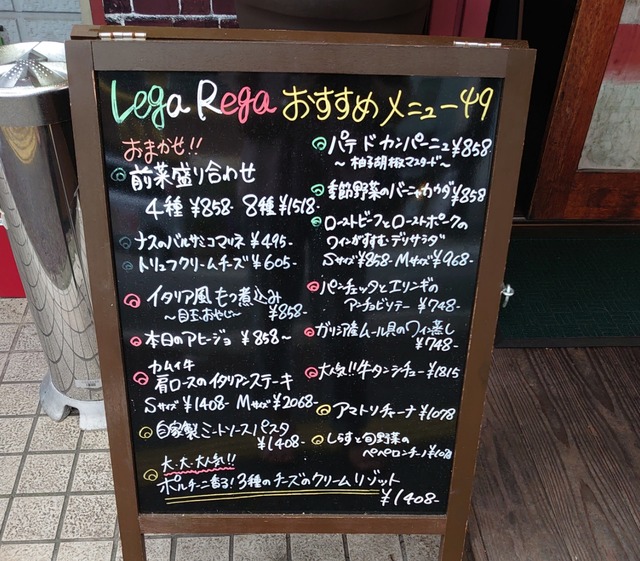 Lega Rega おすすめメニュー
おまかせ!!
前菜盛り合わせ
4種 ¥858- 8種 ¥1518-
ナスのバルサミコマリネ ¥495-
トリュフクリームチーズ ¥605-
イタリア風もつ煮込み
～目玉おやじ～ ¥858-
本日のアヒージョ ¥858～
カムイ牛
肩ロースのイタリアンステーキ
Sサイズ ¥1408- Mサイズ ¥2068-
自家製ミートソースパスタ
¥1408-
大・大・大人気!!
ポルチーニ香る!3種のチーズのクリームリゾット
¥1408-
パテドカンパーニュ ¥858
～柚子胡椒マスタード～
季節野菜のバーニャカウダ ¥858
ローストビーフとローストポークの
ワインがすすむデリサラダ
Sサイズ ¥858- Mサイズ ¥968-
パンチェッタとエリンギの
アンチョビソテー ¥748-
ガリシア産ムール貝のワイン蒸し
¥748-
大人気!!牛タンシチュー ¥1815
アマトリチャーナ ¥1078
しらすと旬野菜の
ペペロンチーノ